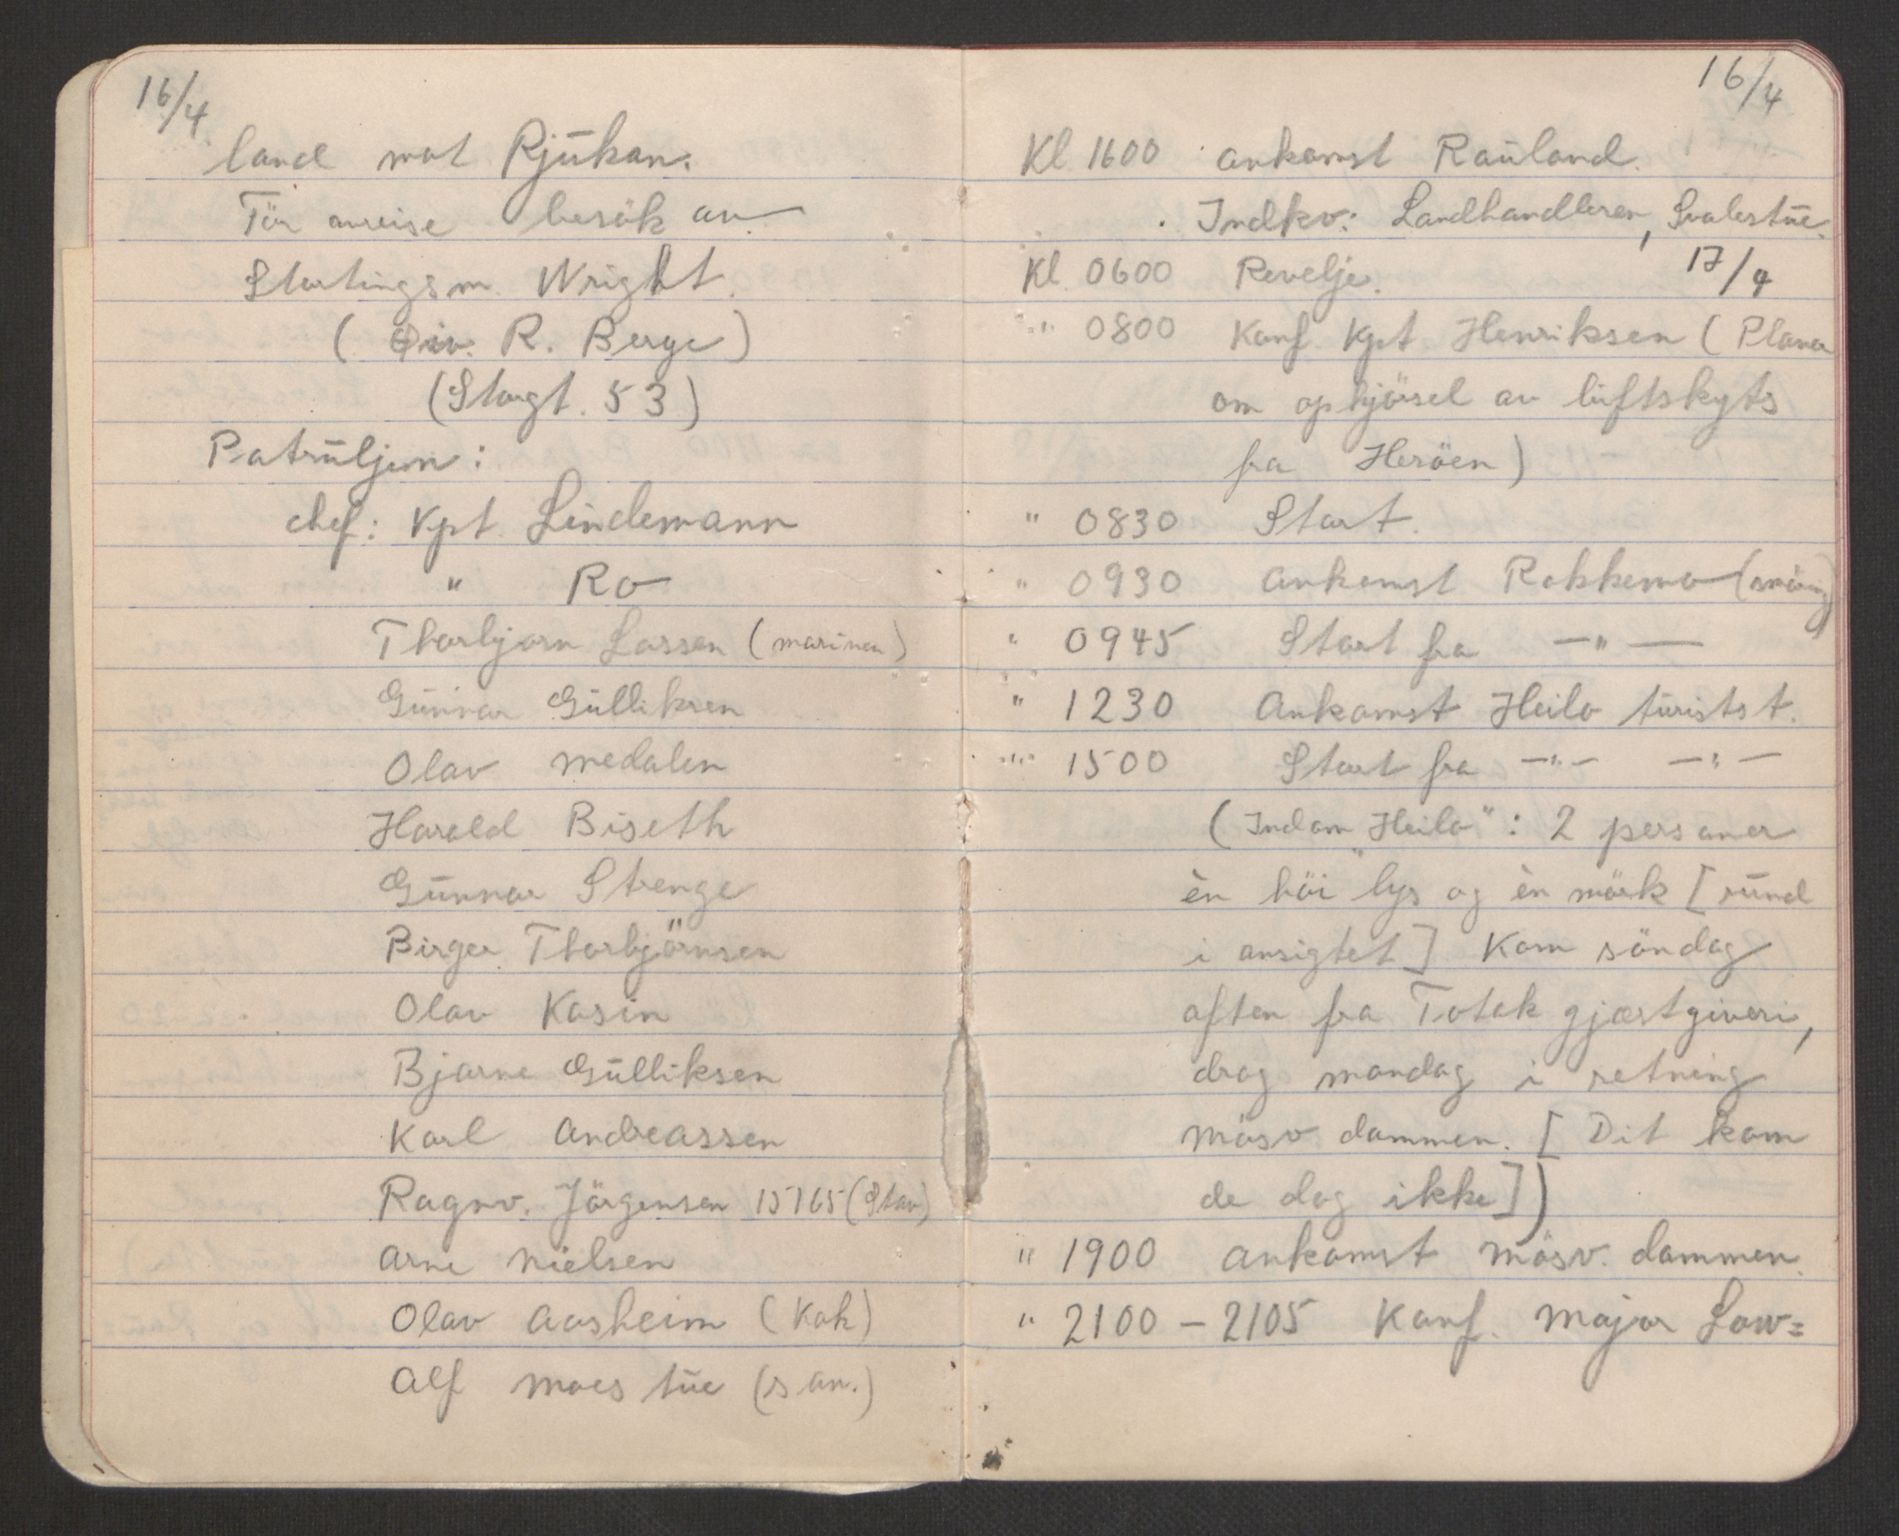 16/4
land mot Rjukan.
Før avreise besök av
Stortingsm. Wright.
( Div. R. Berge)
(Storgt. 53)
Patruljen:
chef: Kpt. Lindemann
" Ro
Thorbjørn Larsen (marinen)
Gunnar Gulliksen
Olav Medalen
Harald Biseth
Gunnar Strenge
Birger Thorbjörnsen
Olav Kasin
Bjarne Gulliksen
Karl Andreassen
Ragnv. Jörgensen 15165 (Stav)
Arne Nielsen
Olav Aasheim (Kok)
Alf Moestue (san.)
16/4
Kl 1600 ankomst Rauland.
Indkv: Landhandleren, Svalestue.
17/4
Kl. 0600 Revelje.
" 0800 Konf. Kpt Henriksen (Planer
om opkjørsel av luftskyts
fra Heröen)
" 0830 Start.
" 0930 Ankomst Rokkemo (smöring)
" 0945 Start fra —"—
" 1230 Ankomst Heilo turistst.
" 1500 Start fra —"— —"—
(Indom "Heilo": 2 personer
èn höi lys og èn mörk [rund
i ansigtet] Kom söndag
aften fra Totak gjæstgiveri,
drog mandag i retning
Mösv. dammen. [Dit kom
de dog ikke])
" 1900 ankomst Mösv. dammen.
" 2100 – 2105 Konf. Major Low=